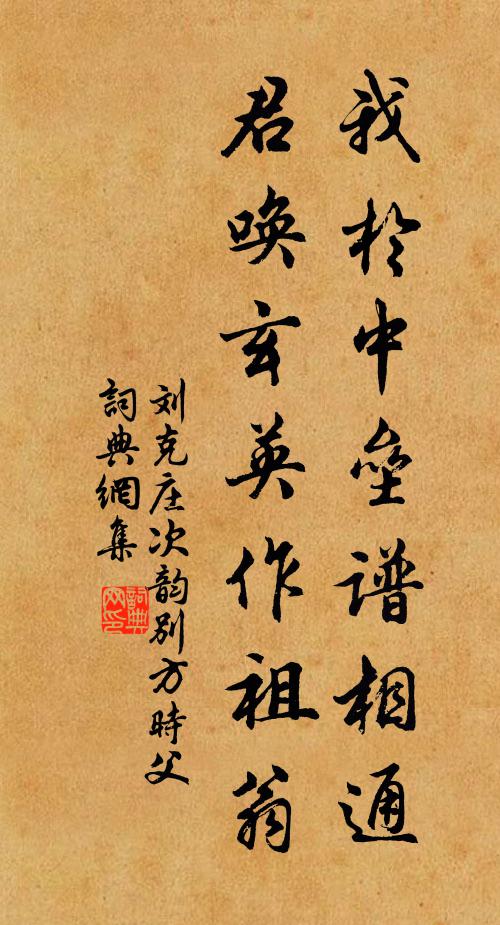 我於中壘谱相通
君唤玄英作祖翁
刘克庄次韵别方時父
詞典網集
詞典网印